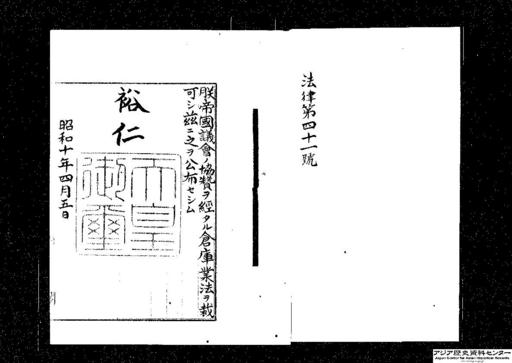 法律第四十一號
朕帝國議會ノ協贊ヲ經タル倉庫業法ヲ裁
可シ茲ニ之ヲ公布セシム
裕仁
天皇
御璽
昭和十年四月五日
アジア歴史資料センター
Japan Center for Asian Historical Records